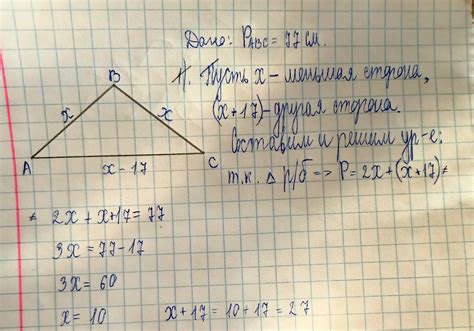 Дано: PABC = 77 см.
1). Пусть x - меньшая сторона,
(x+17) - другая сторона.
Составим и решим ур-е:
т.к. Δ р/б => P = 2x + (x+17) *
B
x
x
A
C
x - 17
* 2x + x + 17 = 77
3x = 77 - 17
3x = 60
x = 10
x + 17 = 10 + 17 = 27